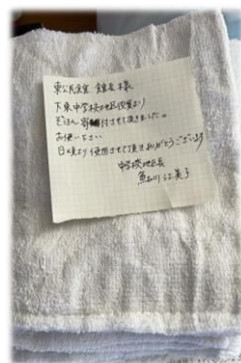 東公民館 館長様
下東中学校地区役員より
ぞうきん寄付させて頂きました。
お使い下さい
日頃より使用させて頂きありがとうございます
中学校地区長